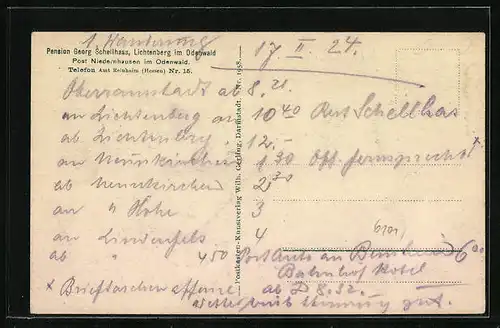 1. Wanderung
17 II. 24.
Pension Georg Schellhaas, Lichtenberg im Odenwald
Post Niedernhausen im Odenwald.
Telefon Amt Reinheim (Hessen) Nr. 15.
Oberramstadt ab 8.21
an Lichtenberg an 10 40 Rest Schellhas
ab Lichtenberg 12.-
an Neunkirchen 1 30 Öff. fernsprecht x
ab Neunkirchen 2 30
an " Höhe 3
an Lindenfels 4
ab " 4 50 Post Auto an Bensheim 6
Bahnhof Hotel
ab D 8.32.
x Brieftaschen
Wetter und Stimmung gut.
6101
Postkarten-Kunstverlag Wilh. Gerling, Darmstadt. Nr.